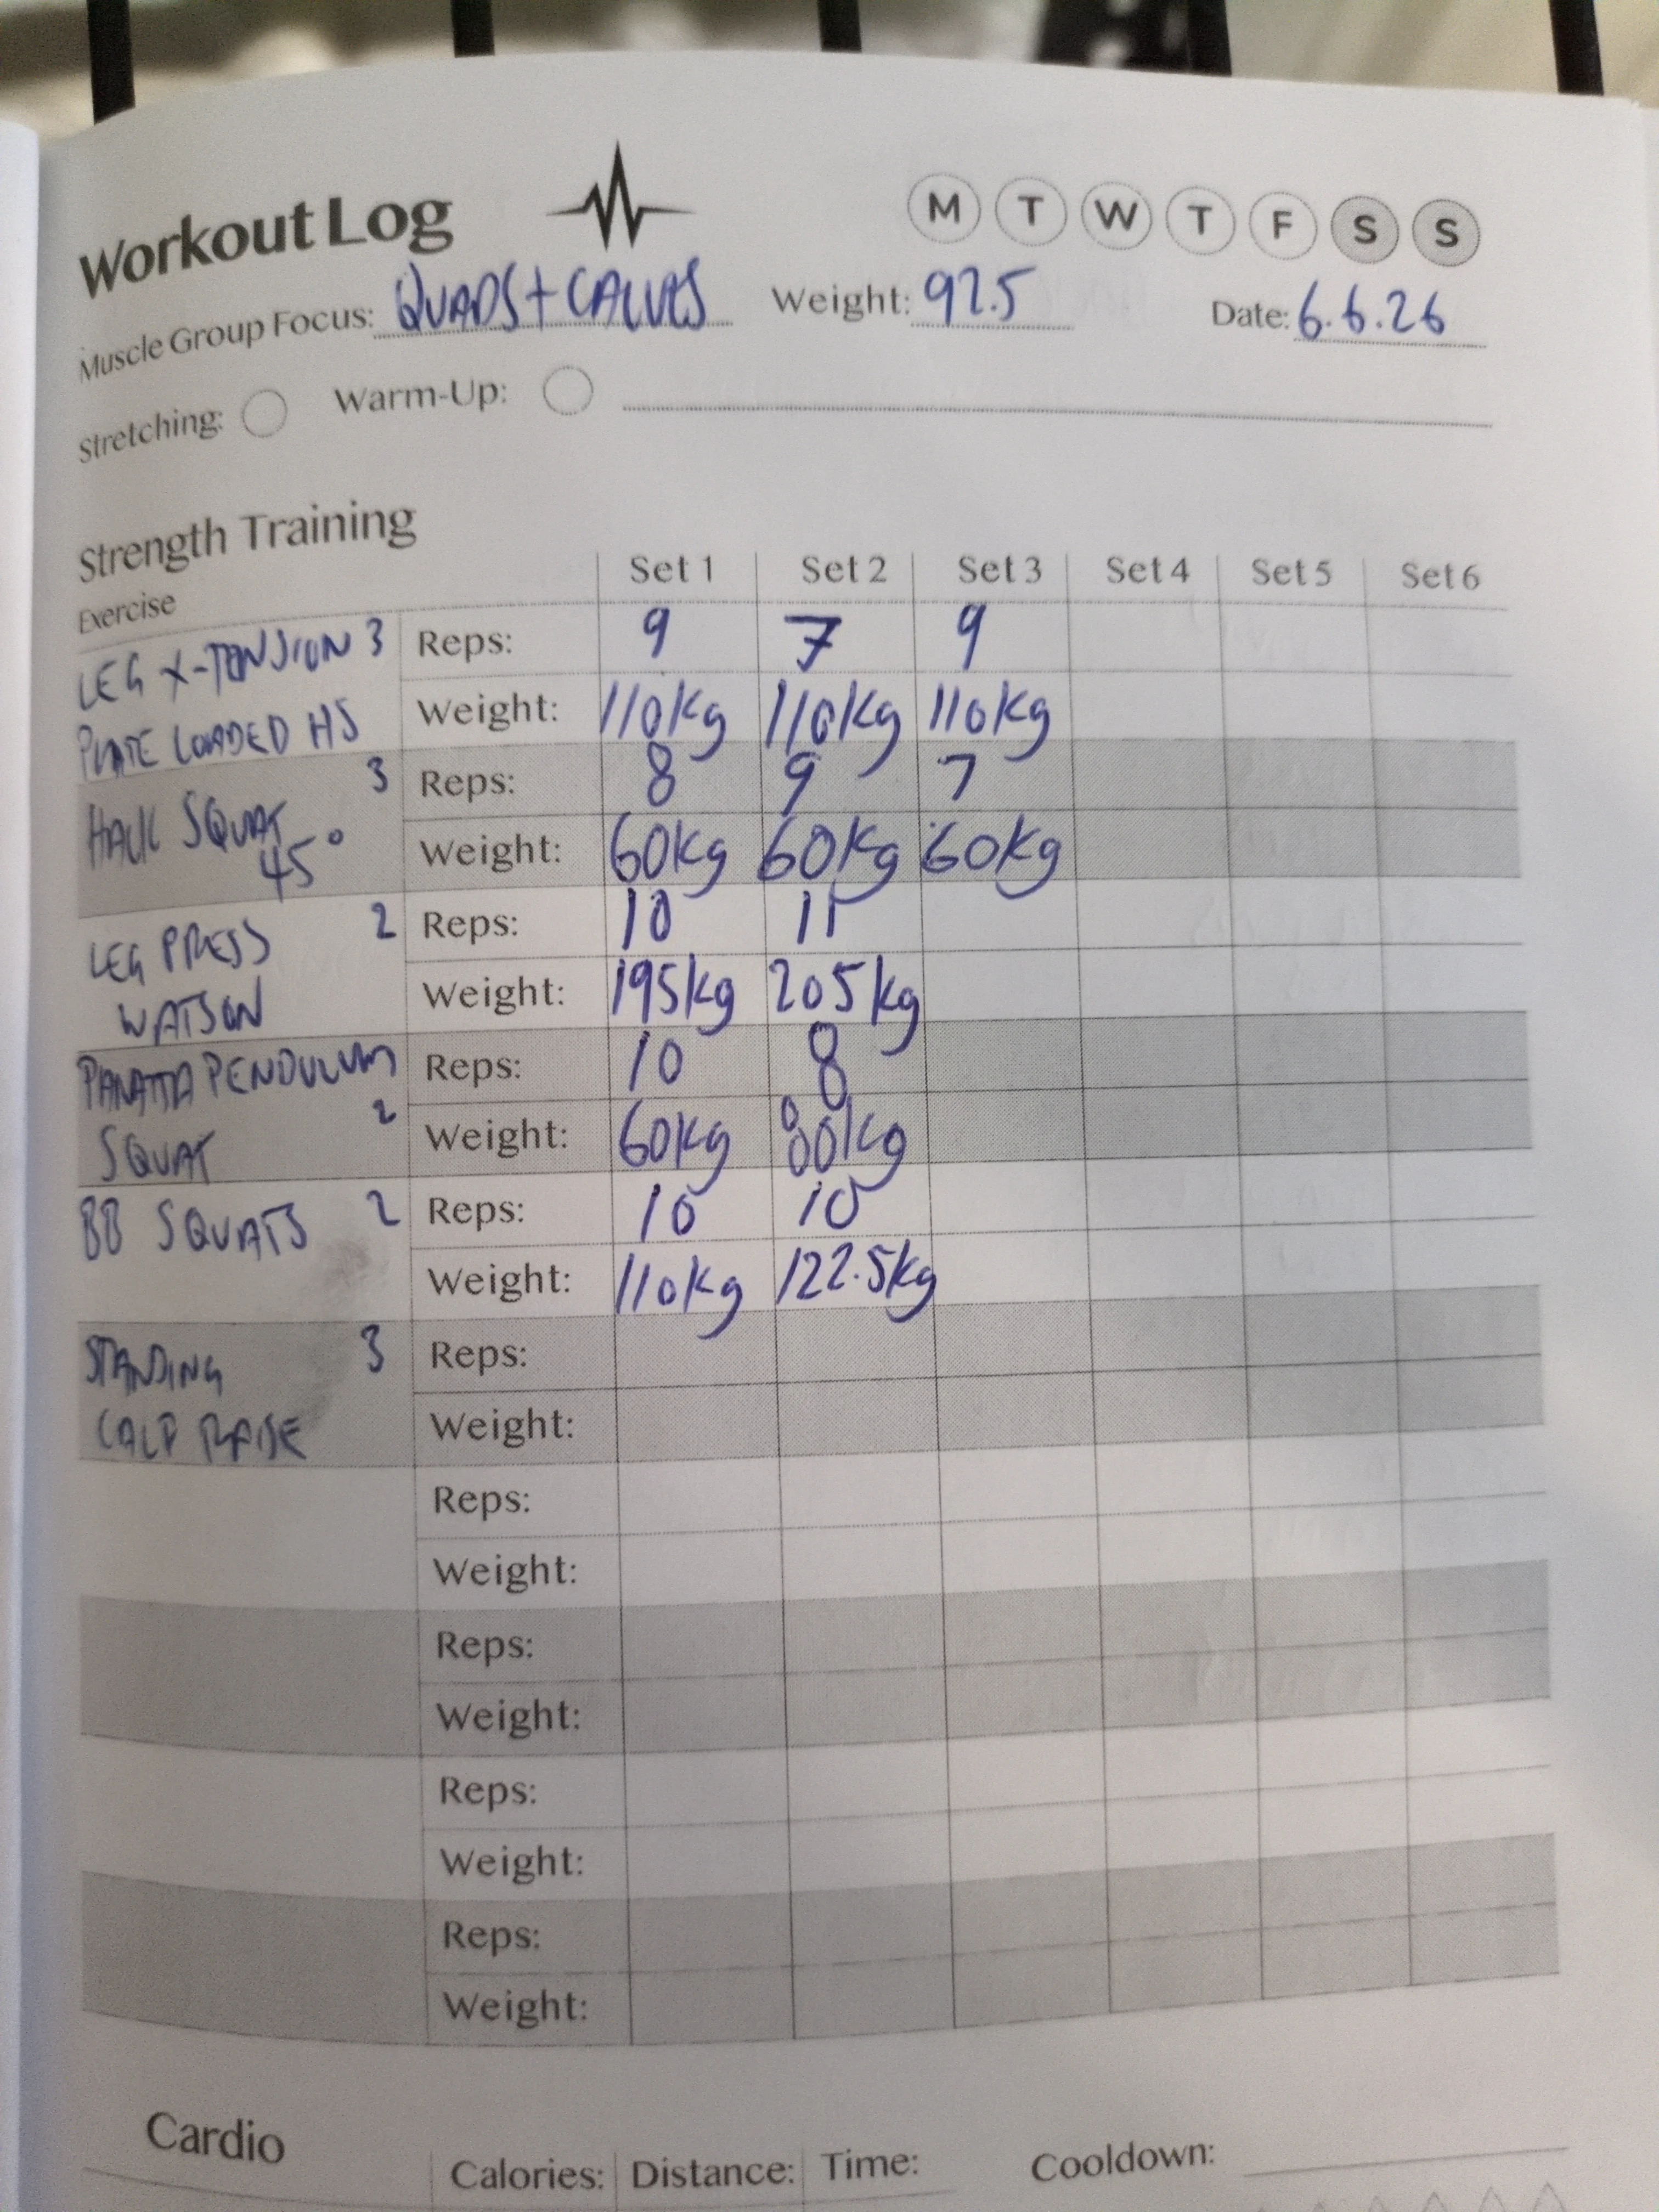 Workout Log
M T W T F S S
Muscle Group Focus: QUADS + CALVES Weight: 92.5 Date: 6.6.26
Stretching: Warm-Up:
Strength Training
Exercise Set 1 Set 2 Set 3 Set 4 Set 5 Set 6
LEG X-TENSION 3 Reps: 9 7 9
PLATE LOADED HS Weight: 110kg 110kg 110kg
3 Reps: 8 9 7
HACK SQUAT 45° Weight: 60kg 60kg 60kg
LEG PRESS 2 Reps: 10 11
WATSON Weight: 195kg 205kg
PANATTA PENDULUM Reps: 10 8
SQUAT 2 Weight: 60kg 80kg
BB SQUATS 2 Reps: 10 10
Weight: 110kg 122.5kg
STANDING 3 Reps:
CALF RAISE Weight:
Reps:
Weight:
Reps:
Weight:
Reps:
Weight:
Reps:
Weight:
Cardio
Calories: Distance: Time: Cooldown: